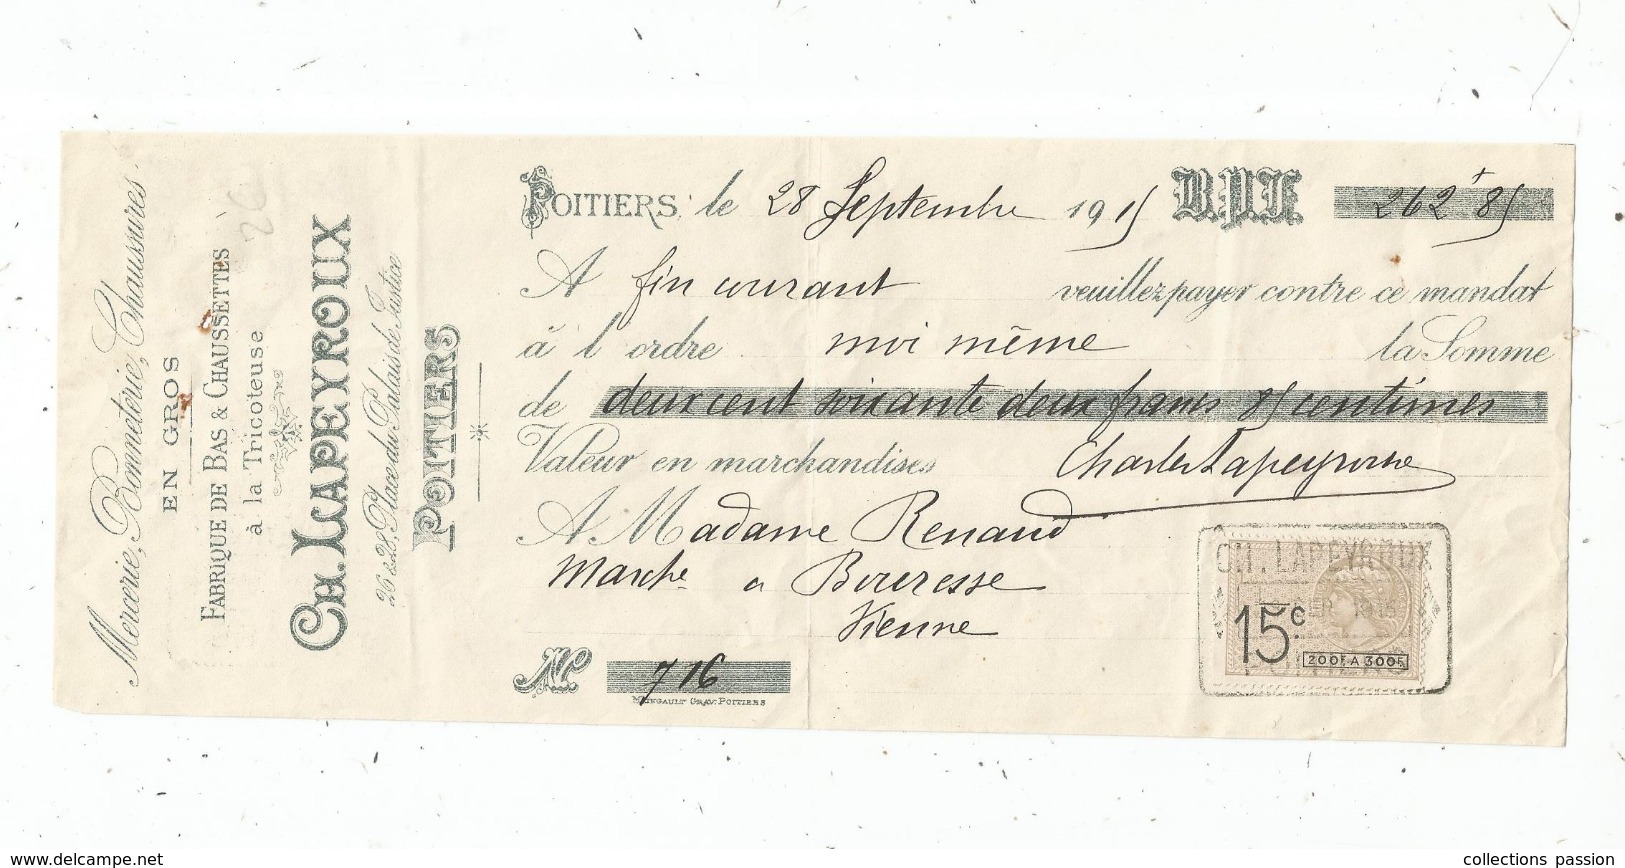 Mercerie, Bonneterie, Chaussures.
EN GROS
FABRIQUE DE BAS & CHAUSSETTES
à la Tricoteuse
CH. LAPEYROUX
26 & 28, Place du Palais de Justice
POITIERS
26
POITIERS, le 28 Septembre 1915 B.P.F. 262 f 85
A fin courant veuillez payer contre ce mandat
à l'ordre moi même la Somme
de deux cent soixante deux francs 85 centimes
Valeur en marchandises Charles Lapeyroux
A Madame Renaud
Marchde à Bouresse
Vienne
CH. LAPEYROUX
1915
15c.
200F A 300F
No. 716
MAINGAULT GRAV. POITIERS
collections passion